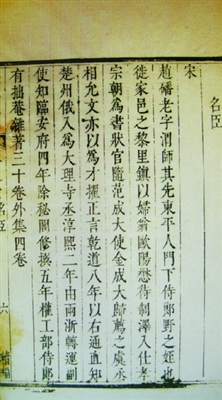 名臣
宋
趙磻老字渭師其先東平人門下侍郎野之姪也
徙家邑之黎里鎮以婦翁歐陽懋待制澤入仕孝
宗朝為書狀官隨范成大使金成大歸薦之虞丞
相允文亦以為才擢正言乾道八年以右通直知
楚州俄入為大理寺丞淳熙二年由兩浙轉運副
使知臨安府四年除秘閣修撰五年權工部侍郎
有拙菴雜著三十卷外集四卷
名臣
六